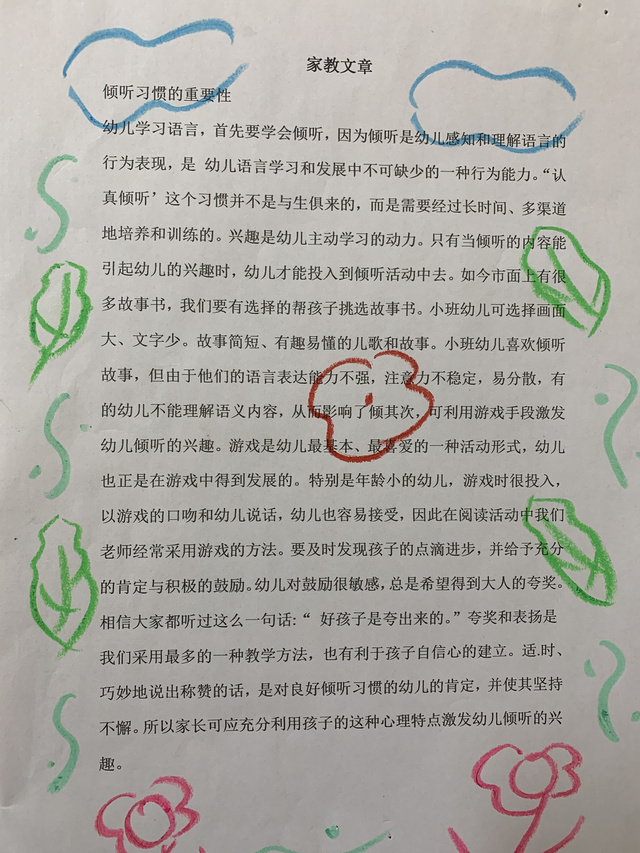 家教文章
倾听习惯的重要性
幼儿学习语言，首先要学会倾听，因为倾听是幼儿感知和理解语言的
行为表现，是 幼儿语言学习和发展中不可缺少的一种行为能力。“认
真倾听’这个习惯并不是与生俱来的，而是需要经过长时间、多渠道
地培养和训练的。兴趣是幼儿主动学习的动力。只有当倾听的内容能
引起幼儿的兴趣时，幼儿才能投入到倾听活动中去。如今市面上有很
多故事书，我们要有选择的帮孩子挑选故事书。小班幼儿可选择画面
大、文字少。故事简短、有趣易懂的儿歌和故事。小班幼儿喜欢倾听
故事，但由于他们的语言表达能力不强，注意力不稳定，易分散，有
的幼儿不能理解语义内容，从而影响了倾其次，可利用游戏手段激发
幼儿倾听的兴趣。游戏是幼儿最基本、最喜爱的一种活动形式，幼儿
也正是在游戏中得到发展的。特别是年龄小的幼儿，游戏时很投入，
以游戏的口吻和幼儿说话，幼儿也容易接受，因此在阅读活动中我们
老师经常采用游戏的方法。要及时发现孩子的点滴进步，并给予充分
的肯定与积极的鼓励。幼儿对鼓励很敏感，总是希望得到大人的夸奖。
相信大家都听过这么一句话:“ 好孩子是夸出来的。”夸奖和表扬是
我们采用最多的一种教学方法，也有利于孩子自信心的建立。适.时、
巧妙地说出称赞的话，是对良好倾听习惯的幼儿的肯定，并使其坚持
不懈。所以家长可应充分利用孩子的这种心理特点激发幼儿倾听的兴
趣。